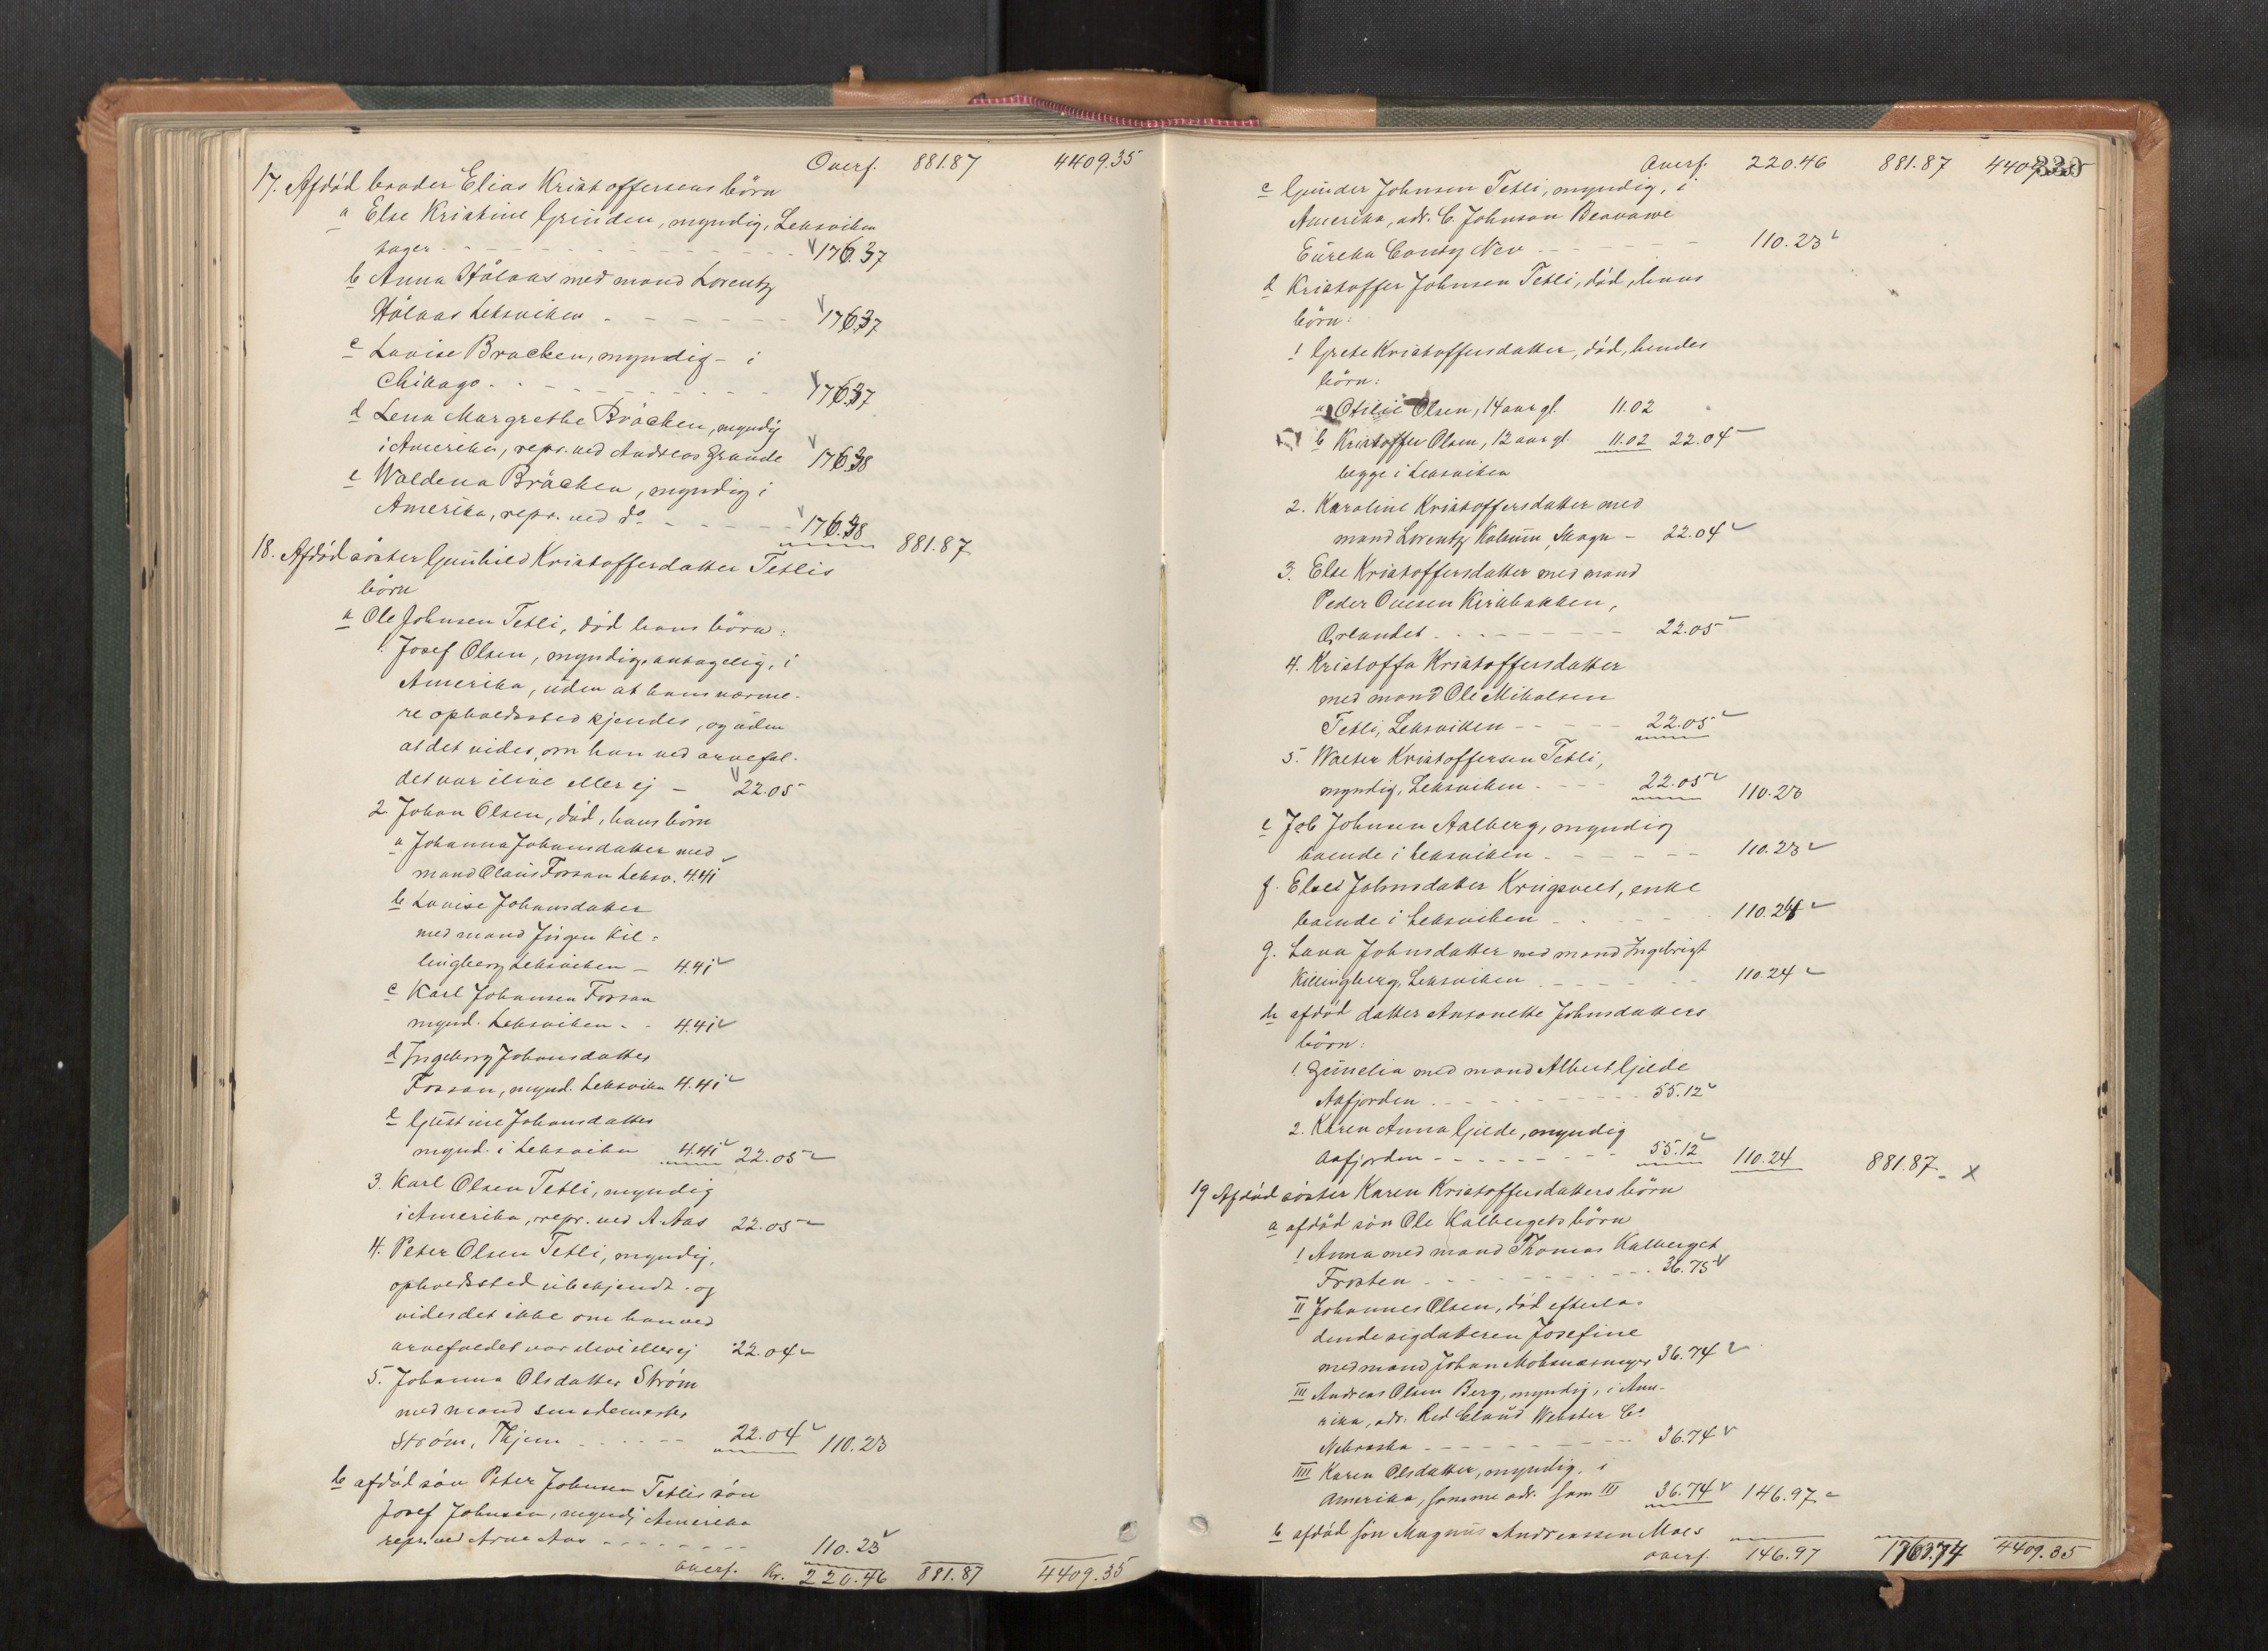 Overf. 881.87 4409.35
17. Afdöd broder Elias Kristoffersens börn
a Else Kristine Grinden, myndig, Leksviken
tager - - - 176.37
b Anna Hölaas med mand Lorentz
Hölaas Leksviken - - - 176.37
c Lovise Bracken, myndig - i
Chikago - - - 176.37
d Lena Margrethe Bräcken, myndig
i Amerika, repr. ved Andreas Grande 176.38
e Waldena Bräcken, myndig i
Amerika, repr. ved do - - - 176.38 881.87
18. Afdöd söster Gunhild Kristoffersdatter Tetlis
börn
a Ole Johnsen Tetli, död hans börn:
1. Josef Olsen, myndig, antagelig, i
Amerika, uden at hans nærme-
re opholdssted kjendes, og uden
at det vides, om han ved arvefal-
det var ilive eller ej - 22.05
2. Johan Olsen, död, hans börn
a Johanna Johansdatter med
mand Olaus Fossan Leksv. 4.41
b Lovise Johansdatter
med mand Jörgen Kil-
lingberg Leksviken - 4.41
c Karl Johansen Fossan
mynd. Leksviken - - 4.41
d Ingeborg Johansdatter
Fossan, mynd. Leksviken 4.41
e Gustine Johansdatter
mynd. i Leksviken 4.41 22.05
3. Karl Olsen Tetli, myndig
i Amerika, repr. ved A. Aas 22.05
4. Peter Olsen Tetli, myndig,
opholdssted ubekjendt - og
vides det ikke om han ved
arvefaldet var ilive eller ej 22.04
5. Johanna Olsdatter Ström
med mand smedemester
Ström, Thjem - - - 22.04 110.23
b afdöd sön Peter Johnsen Tetlis sön
Josef Johnsen, myndig Amerika
repr. ved Arne Aas - - - 110.23
overf. Kr. 220.46 881.87 4409.35
Overf. 220.46 881.87 4409.35
339
c Gunder Johnsen Tetli, myndig, i
Amerika, adr. C. Johnson Beowawe
Eureka Conty Nev - - - 110.23
d Kristoffer Johnsen Tetli, död, hans
börn:
1 Grete Kristoffersdatter, död, hendes
börn:
a Otilie Olsen, 14 aar gl. 11.02
b Kristoffer Olsen, 12 aar gl. 11.02 22.04
begge i Leksviken
2. Karoline Kristoffersdatter med
mand Lorentz - 22.04
3. Else Kristoffersdatter med mand
Peder Ovesen Kirkbakken,
Örlandet - - - 22.05
4. Kristoffa Kristoffersdatter
med mand Ole Mikalsen
Tetli, Leksviken - - - 22.05
5. Walter Kristoffersen Tetli,
myndig, Leksviken - - - 22.05 110.23
e Job Johnsen Aalberg, myndig
boende i Leksviken - - - 110.23
f. Elsed Johnsdatter, enke
boende i Leksviken - - - 110.24
g. Lava Johnsdatter med mand Ingebrigt
Killingberg, Leksviken - - - 110.24
h afdöd datter Antonette Johnsdatters
börn:
1. Gunelia med mand Albert Gjelde
Aafjorden - - - 55.12
2. Karen Anna Gjelde, myndig
Aafjorden - - - 55.12 110.24 881.87 - x
19 Afdöd söster Karen Kristoffersdatters börn
a afdöd sön Ole Kalbergets börn
I Anna med mand Thomas Kalberget
Frosten - - - 36.75
II Johannes Olsen, död efterla-
dende sig datteren Josefine
med mand Johan 36.74
III Andreas Olsen Berg, myndig, i Ame-
rika, adr. Red Cloud Webster Co
Nebraska - - - 36.74
IIII Karen Olsdatter, myndig, i
Amerika, samme adr. som III 36.74 146.97
b afdöd sön Magnus Andreassen Moes
overf. 146.97 1763.74 4409.35